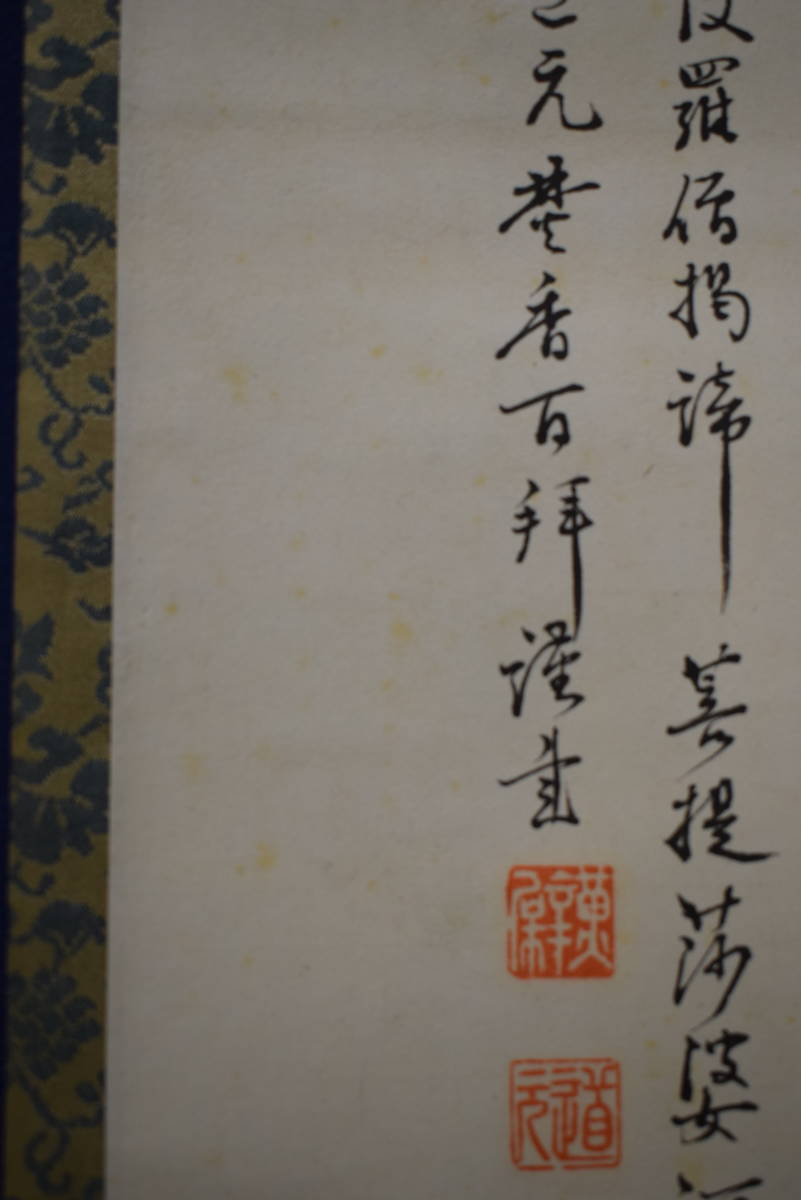 羅僧揭諦菩提莎婆
元焚香百拜謹書
道元